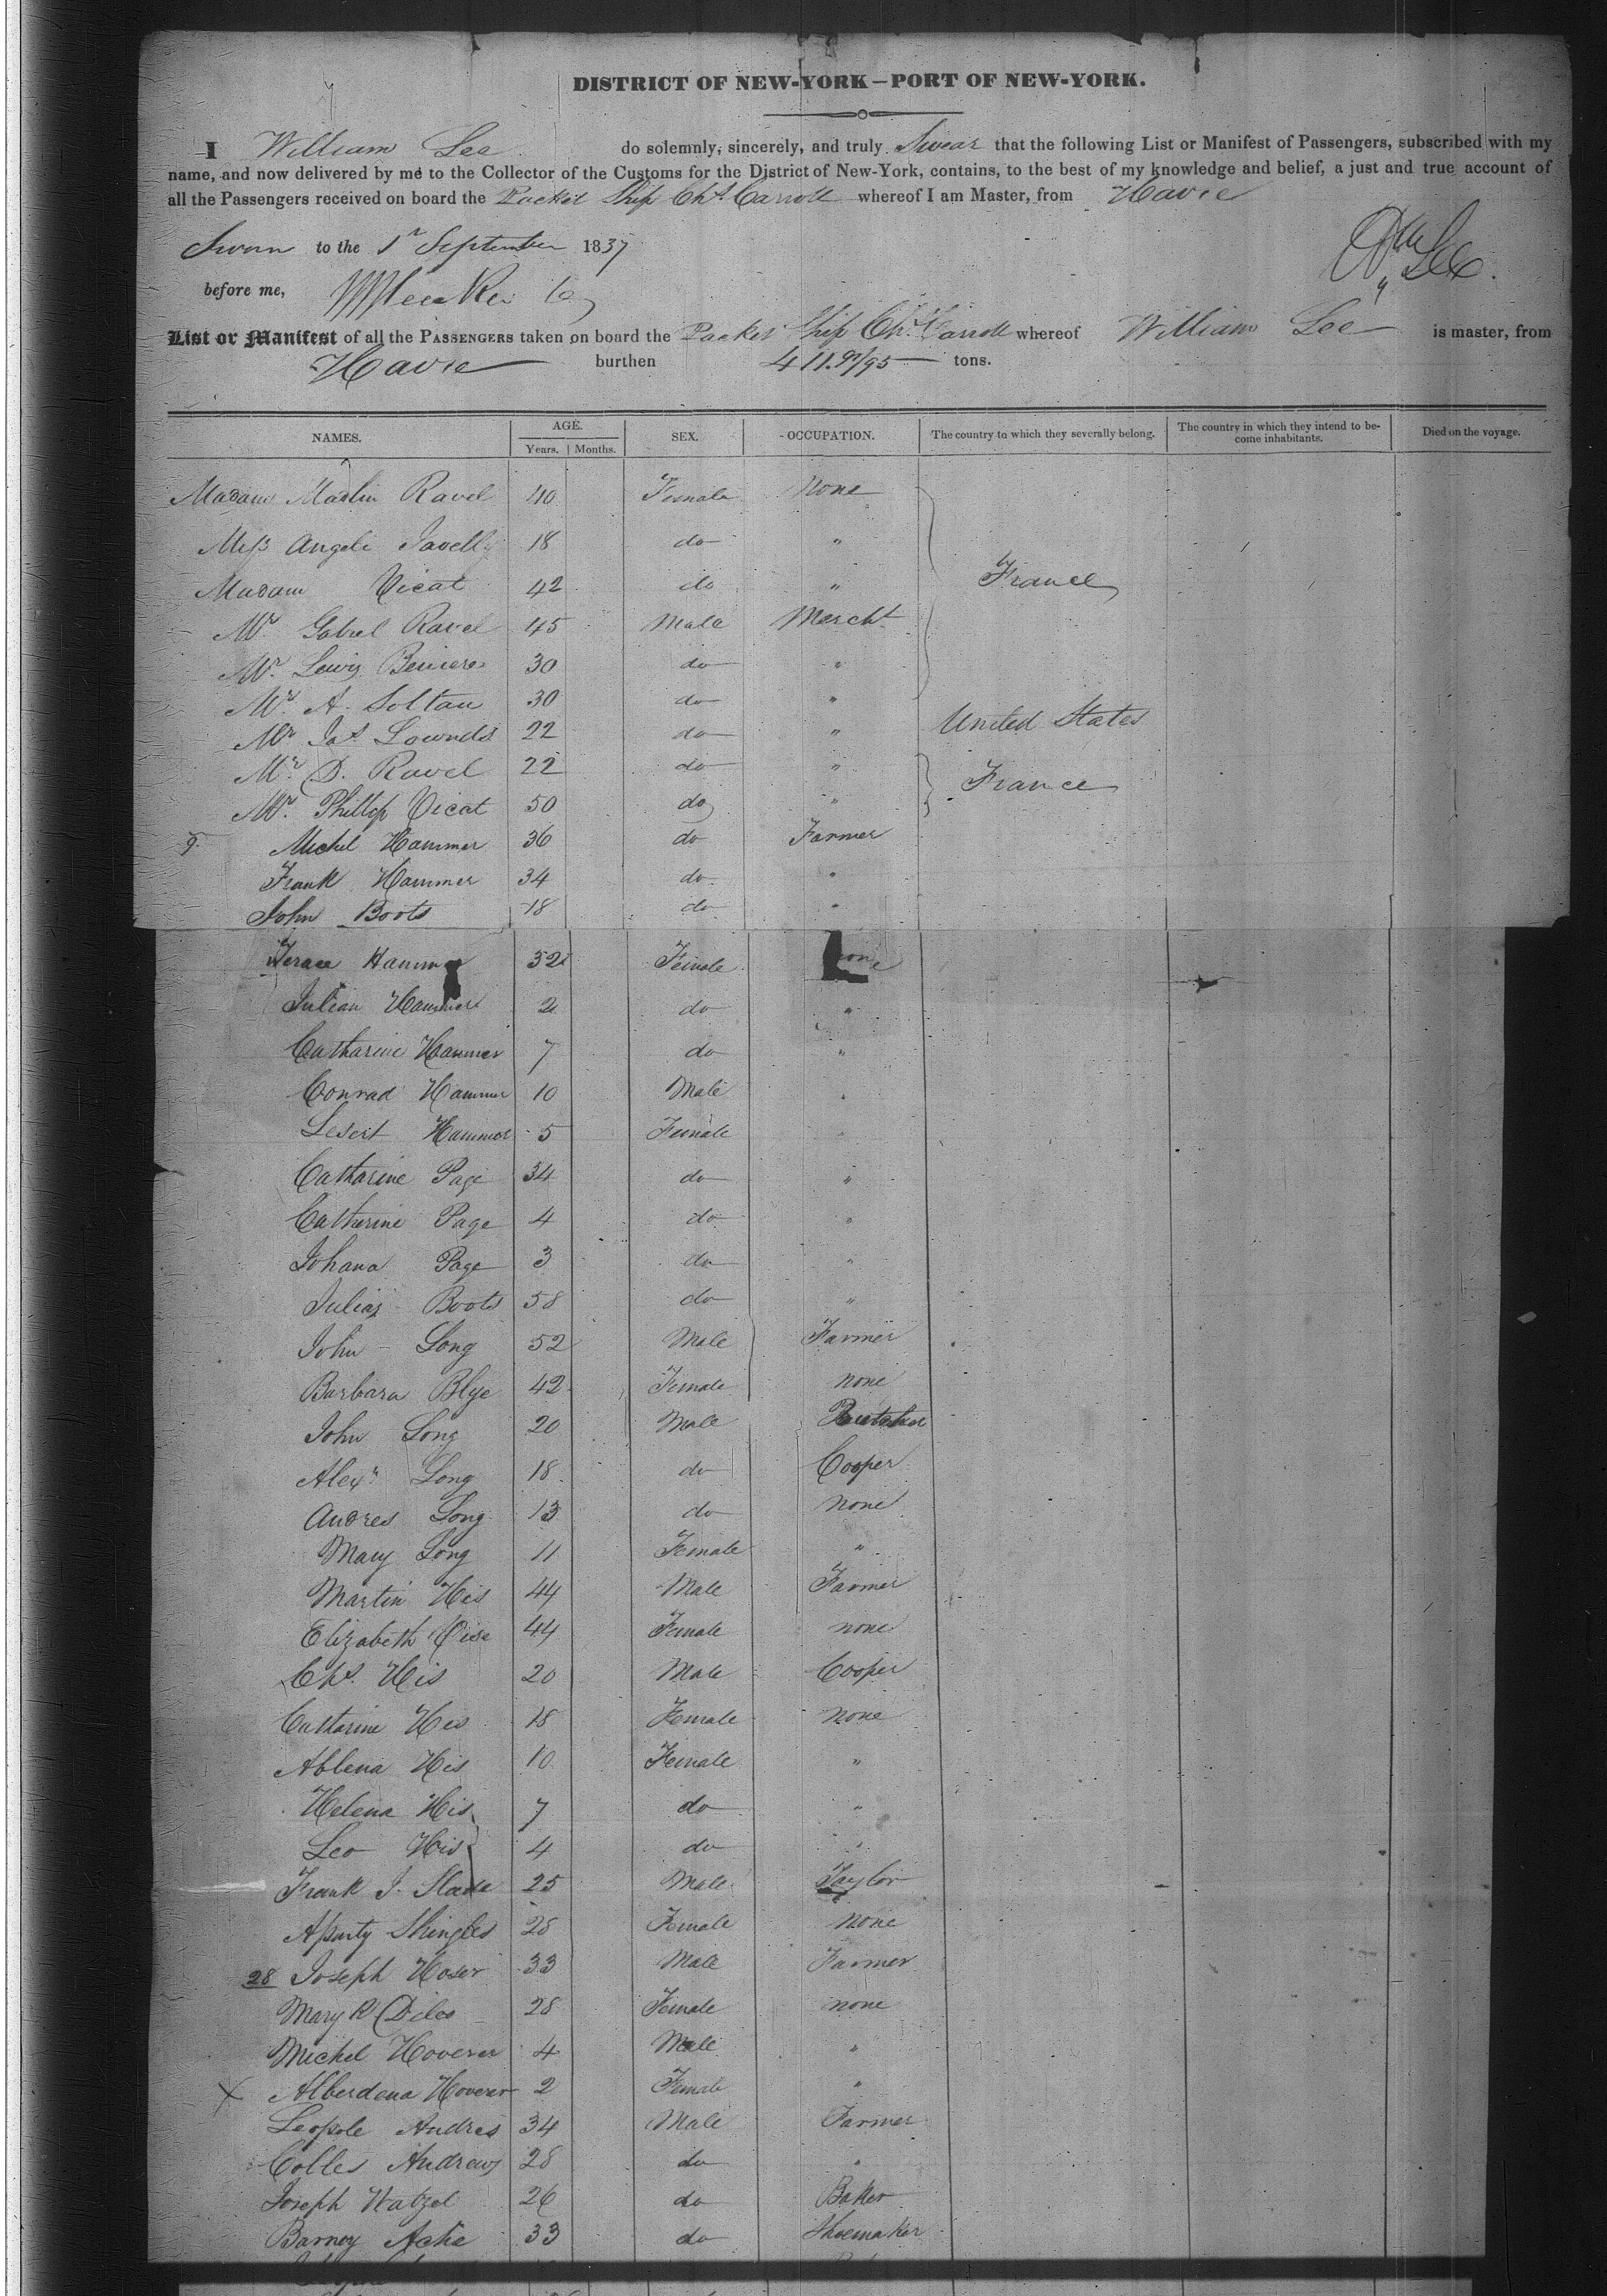 DISTRICT OF NEW-YORK—PORT OF NEW-YORK.
I William Lee do solemnly, sincerely, and truly Swear that the following List or Manifest of Passengers, subscribed with my
name, and now delivered by me to the Collector of the Customs for the District of New-York, contains, to the best of my knowledge and belief, a just and true account of
all the Passengers received on board the Packet Ship Chs. Carroll whereof I am Master, from Havre
Sworn to the 1st September 1837
Wm Lee.
before me,
List or Manifest of all the PASSENGERS taken on board the Packet Ship Chs. Carroll whereof William Lee is master, from
Havre burthen 411. 91/95 tons.
NAMES. AGE. Years. Months. SEX. OCCUPATION. The country to which they severally belong. The country in which they intend to become inhabitants. Died on the voyage.
Madam Martin Ravel 40 Female None
Miss Angele Javelly 18 do "
Madam Vicat 42 do " France
Mr. Gabrel Ravel 45 Male Mercht
Mr. Lewis 30 do "
Mr. A. Soltau 30 do "
Mr Jas Lownds 22 do " United States
Mr. D. Ravel 22 do "
Mr. Phillip Vicat 50 do " France
9. Michel Hammer 36 do Farmer
Frank Hammer 34 do "
John Boots 18 do "
Hammer 32 Female none
Julian Hammer 2 do "
Catharine Hammer 7 do "
Conrad Hammer 10 Male "
Hammer 5 Female "
Catharine Page 34 do "
Catherine Page 4 do "
Johana Page 3 do "
Julias Boots 58 do "
John Long 52 Male Farmer
Barbara Blye 42 Female none
John Long 20 Male
Alexr Long 18 do Cooper
Andres Long 13 do none
Mary Long 11 Female "
Martin His 44 Male Farmer
Elizabeth 44 Female none
Chs. His 20 Male Cooper
Catharine His 18 Female none
Ablena His 10 Female "
Helena His 7 do "
Leo His 4 do "
Frank J. Slada 25 Male Taylor
Shingles 28 Female none
28 Joseph Hoser 33 Male Farmer
Mary R Diles 28 Female none
Michel Hoverer 4 Male "
X Alberdena Hoverer 2 Female "
Leopole Andres 34 Male Farmer
Colles Andrews 28 do "
Joseph Hatzel 26 do Baker
Barney Ache 33 do Shoemaker